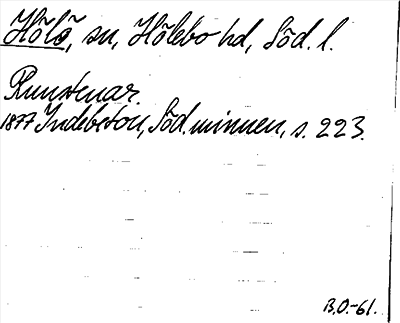 Hölö, sn, Hölebo hd, Söd. l.
Runstenar.
1877 Indebetou, Söd. minnen, s. 223.
B.O.-61.